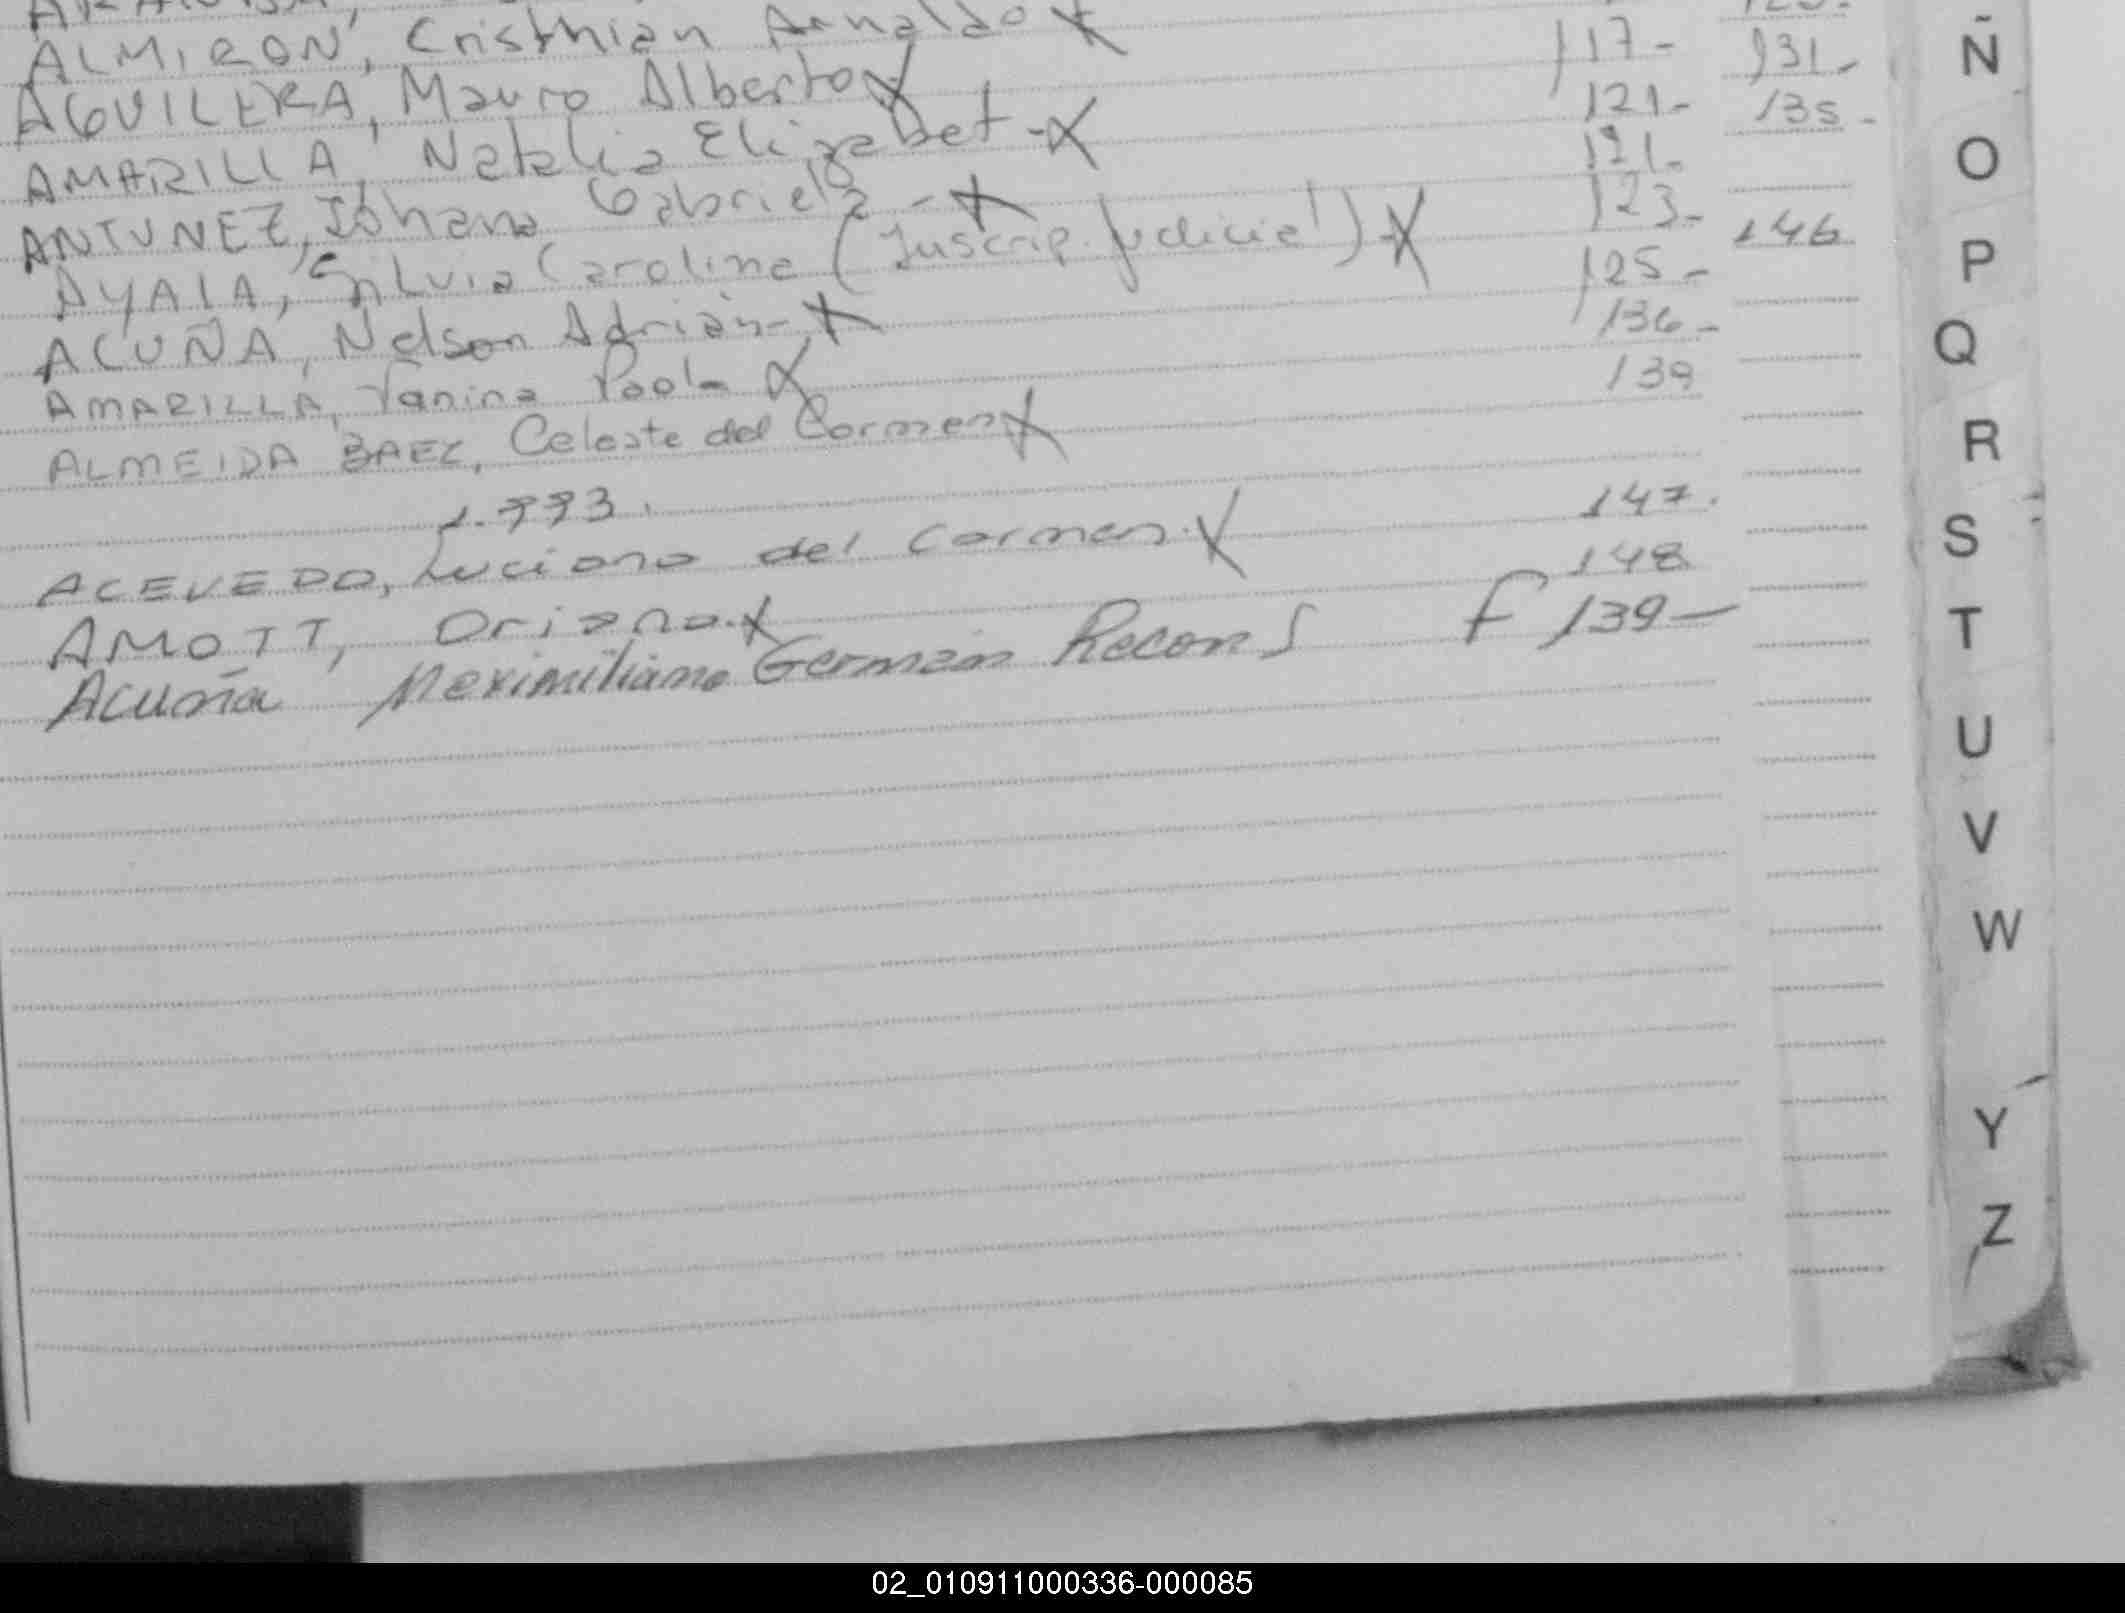 ALMIRON, Cristhian Arnaldo X 117- 131-
AGUILERA, Mauro Alberto X 121- 135-
AMARILLA, Natalia Elizabet -X 121-
ANTUNEZ, Johana Gabriela - X 123- 146
AYALA, Silvia Carolina (Inscrip. Judicial) - X 125-
ACUÑA, Nelson Adrián - X 136-
AMARILLA, Vanina Paola X 139
ALMEIDA BAEZ, Celeste del Carmen X
1.993.
ACEVEDO, Luciano del Carmen. X 147.
AMOTT, Oriana. X 148
Acuña Maximiliano Germán Recon F 139-
Ñ
O
P
Q
R
S
T
U
V
W
Y
Z
02_010911000336-000085